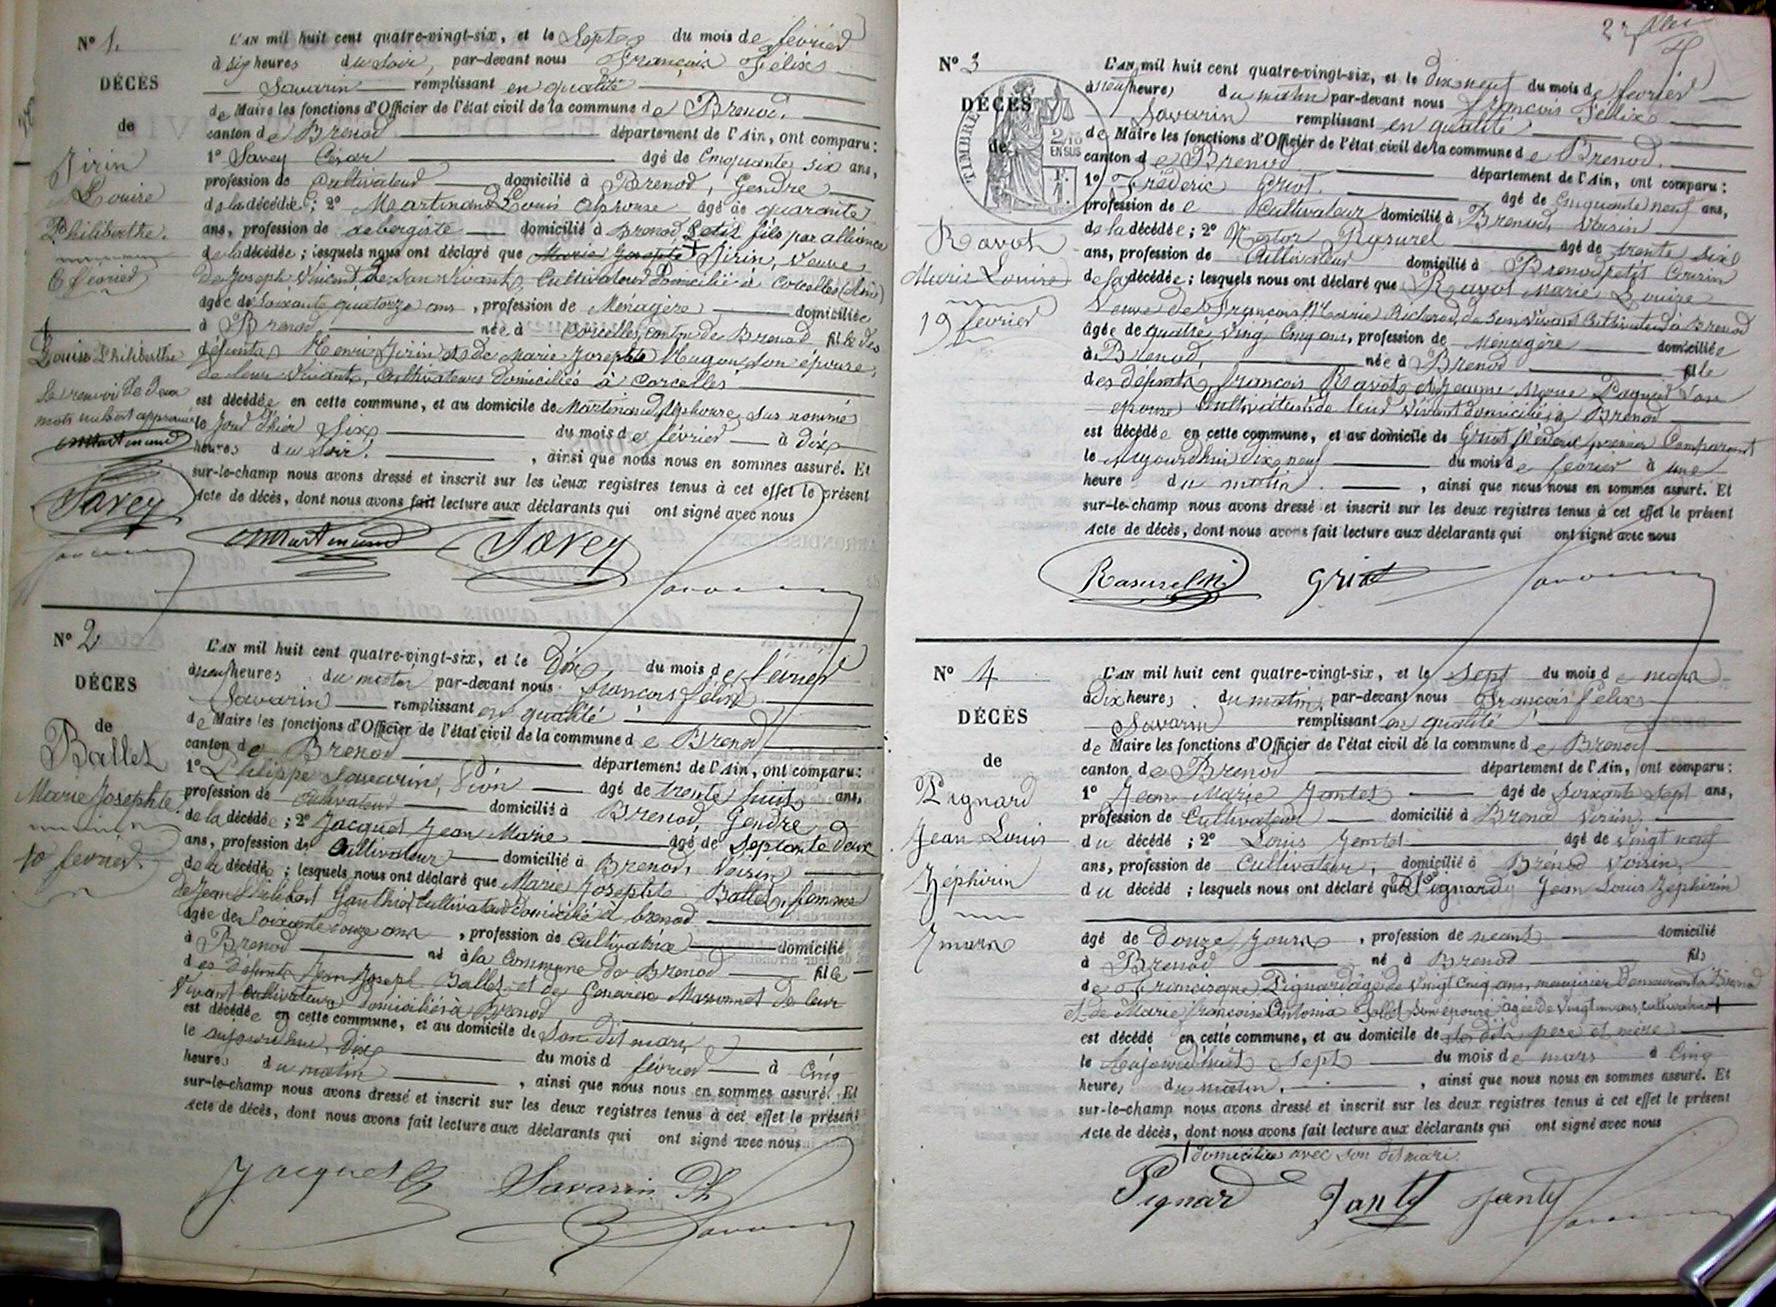 N° 1.
DÉCÈS
de
Jirin
Louise
Philiberthe.
6 février
Louise Philiberthe
Le renvoi de deux
mots nul est approuvé
Martinand
Savey
L'AN mil huit cent quatre-vingt-six, et le Sept du mois de février
à six heures du soir, par-devant nous François Félix
Savarin remplissant en qualité
de Maire les fonctions d'Officier de l'état civil de la commune de Brenod.
canton de Brenod département de l'Ain, ont comparu :
1° Savey César âgé de Cinquante six ans,
profession de Cultivateur domicilié à Brenod, Gendre
de la décédée ; 2° Martinand Louis Alphonse âgé de quarante
ans, profession de aubergiste domicilié à Brenod Petit fils par alliance
de la décédée ; lesquels nous ont déclaré que Marie Josephte Jirin, veuve
de Joseph Vincent, de son vivant, Cultivateur domicilié à Corcelles (Ain)
âgée de Soixante quatorze ans, profession de Ménagère, domiciliée
à Brenod, née à Corcelles, canton de Brenod fille des
défunts Henri Jirin et de Marie Josephte Hugon, son épouse,
de leur vivant, Cultivateurs domiciliés à Corcelles
est décédée en cette commune, et au domicile de Martinand Alphonse, sus nommé
le jour d'hier Six du mois de février à dix
heures du soir. , ainsi que nous nous en sommes assuré. Et
sur-le-champ nous avons dressé et inscrit sur les deux registres tenus à cet effet le présent
Acte de décès, dont nous avons fait lecture aux déclarants qui ont signé avec nous
Martinand Savey Savarin
N° 2
DÉCÈS
de
Ballet
Marie Josephte.
10 février.
L'AN mil huit cent quatre-vingt-six, et le Dix du mois de février
à neuf heures du matin par-devant nous François Félix
Savarin remplissant en qualité
de Maire les fonctions d'Officier de l'état civil de la commune de Brenod
canton de Brenod département de l'Ain, ont comparu :
1° Philippe Savarin, âgé de trente huit ans,
profession de Cultivateur domicilié à Brenod Gendre
de la décédée ; 2° Jacquet Jean Marie âgé de Septante deux
ans, profession de Cultivateur domicilié à Brenod, Voisin
de la décédée ; lesquels nous ont déclaré que Marie Josephte Ballet, femme
de Jean Philibert Gauthier Cultivateur domicilié à brenod
âgée de Soixante douze ans, profession de Cultivatrice domicilié
à Brenod né à la Commune de Brenod fille
des défunts Jean Joseph Ballet et de Genevieve Massonnet de leur
Vivant Cultivateurs domiciliés à Brenod
est décédée en cette commune, et au domicile de Son dit mari,
le aujourdhui, Dix du mois d février à Cinq
heures du matin , ainsi que nous nous en sommes assuré. Et
sur-le-champ nous avons dressé et inscrit sur les deux registres tenus à cet effet le présent
Acte de décès, dont nous avons fait lecture aux déclarants qui ont signé avec nous
Jacquet Savarin Ph Savarin
N° 3
DÉCÈS
de
TIMBRE
2/10
EN SUS
Ravot
Marie Louise
19 février
L'AN mil huit cent quatre-vingt-six, et le dix neuf du mois de février
à neuf heures du matin par-devant nous François Félix
Savarin remplissant en qualité
de Maire les fonctions d'Officier de l'état civil de la commune de Brenod.
canton de Brenod département de l'Ain, ont comparu :
1° Fréderic Griot. âgé de Cinquante neuf ans,
profession de Cultivateur domicilié à Brenod, Voisin
de la décédée ; 2° Nestor Rasurel âgé de trente six
ans, profession de Cultivateur domicilié à Brenod petit Cousin
de la décédée ; lesquels nous ont déclaré que Ravot Marie Louise
Veuve de François Marie Richerod, de Son vivant Cultivateur à Brenod
âgée de quatre Vingt Cinq ans, profession de Menagère domiciliée
à Brenod née à Brenod fille
des défunts françois Ravot et Jeanne Marie Paquet Son
épouse Cultivateurs de leur Vivant domiciliés à Brenod
est décédée en cette commune, et au domicile de Griot fréderic premier Comparant
le Aujourdhui dix neuf du mois de février à une
heure du matin , ainsi que nous nous en sommes assuré. Et
sur-le-champ nous avons dressé et inscrit sur les deux registres tenus à cet effet le présent
Acte de décès, dont nous avons fait lecture aux déclarants qui ont signé avec nous
Rasurel N. Griot Savarin
N° 4
DÉCÈS
de
Pignard
Jean Louis
Zéphirin
7 mars
L'AN mil huit cent quatre-vingt-six, et le Sept du mois de mars
à Dix heures du matin, par-devant nous François félix
Savarin remplissant en qualité
de Maire les fonctions d'Officier de l'état civil de la commune de Brenod
canton de Brenod département de l'Ain, ont comparu :
1° Jean Marie Jantet âgé de Soixante Sept ans,
profession de Cultivateur domicilié à Brenod Voisin
du décédé ; 2° Louis Jantet âgé de Vingt neuf
ans, profession de Cultivateur, domicilié à Brenod Voisin,
du décédé ; lesquels nous ont déclaré que Pignard Jean Louis Zephirin
âgé de Douze Jours, profession de néant domicilié
à Brenod né à Brenod fils
de Francisque Pignard âgé de Vingt Cinq ans, menuisier Demeurant à Brenod
et de Marie françoise Antonia Ballet Son épouse, agée de Vingt un ans, cultivatrice
est décédé en cette commune, et au domicile de Ses dits pere et mère
le Aujourdhuit Sept du mois de mars à Cinq
heures du matin, , ainsi que nous nous en sommes assuré. Et
sur-le-champ nous avons dressé et inscrit sur les deux registres tenus à cet effet le présent
Acte de décès, dont nous avons fait lecture aux déclarants qui ont signé avec nous
domiciliée avec son dit mari.
Pignard Jantet Jantet Savarin